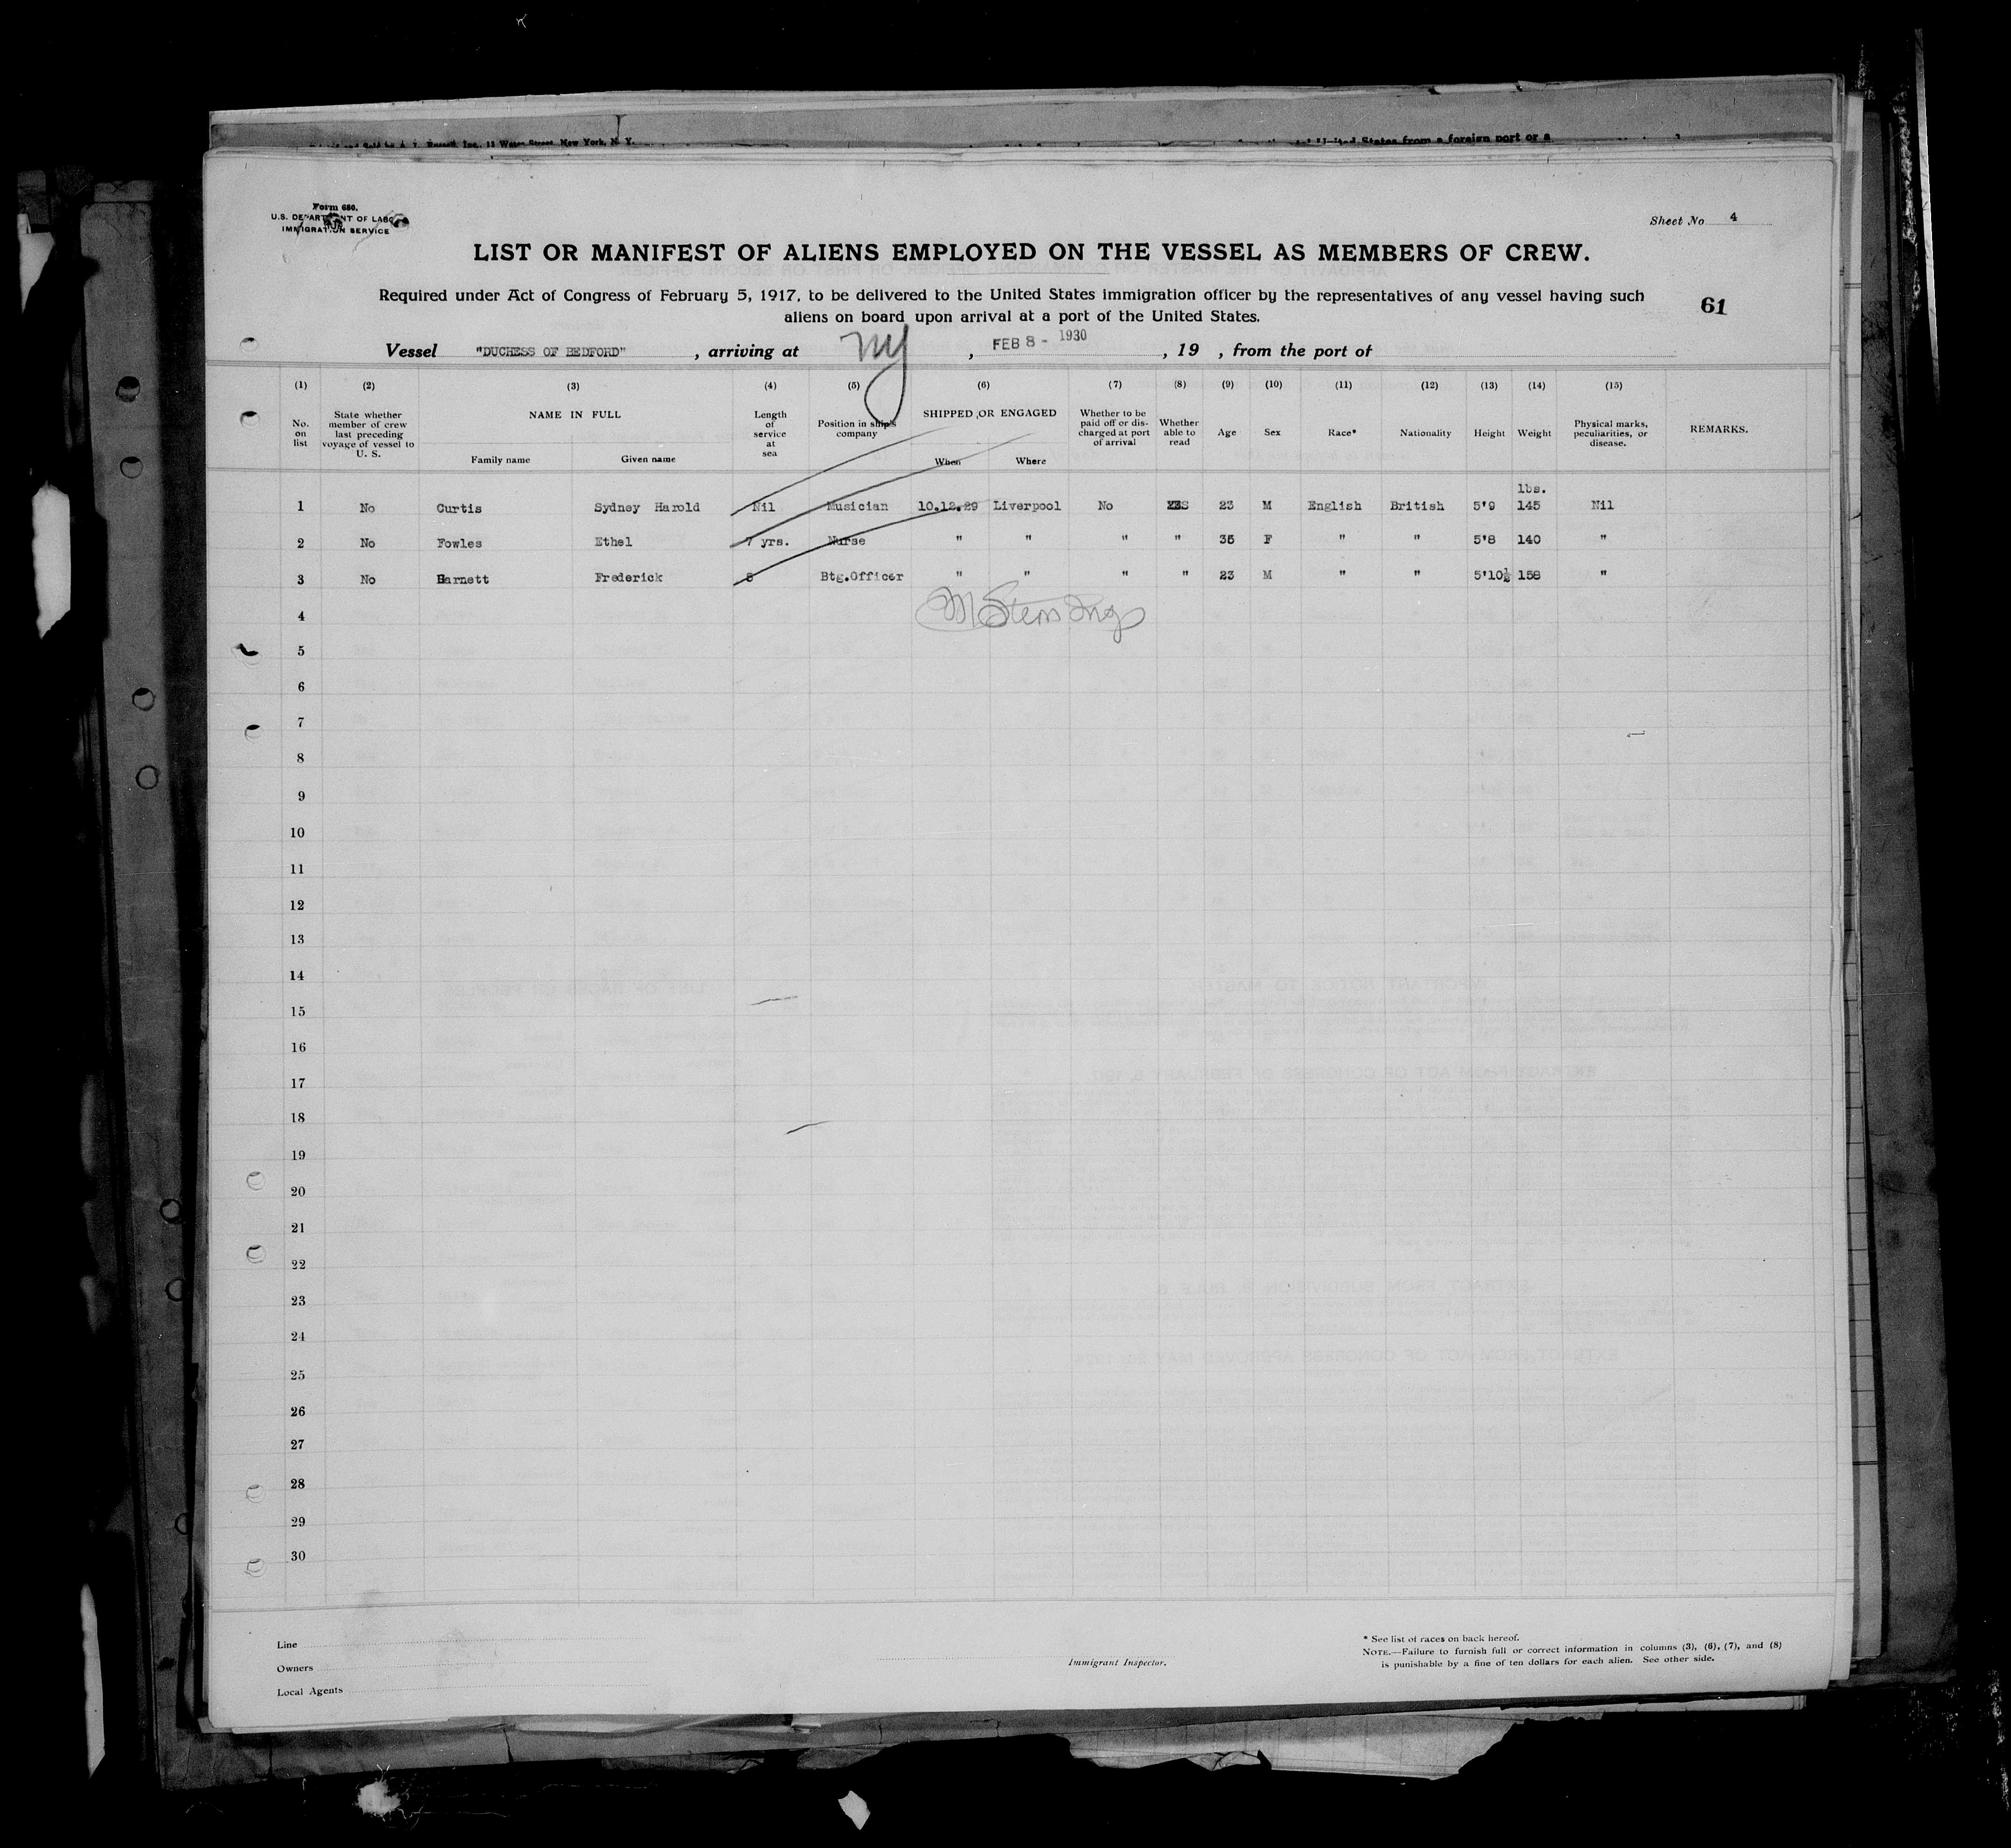 Form 680.
U.S. DEPARTMENT OF LABOR
IMMIGRATION SERVICE
Sheet No. 4
LIST OR MANIFEST OF ALIENS EMPLOYED ON THE VESSEL AS MEMBERS OF CREW.
Required under Act of Congress of February 5, 1917, to be delivered to the United States immigration officer by the representatives of any vessel having such
aliens on board upon arrival at a port of the United States.
61
Vessel "DUCHESS OF BEDFORD", arriving at NY, FEB 8 - 1930, 19 , from the port of
(1) (2) (3) (4) (5) (6) (7) (8) (9) (10) (11) (12) (13) (14) (15)
No. on list State whether member of crew last preceding voyage of vessel to U. S. NAME IN FULL Family name Given name Length of service at sea Position in ship's company SHIPPED OR ENGAGED When Where Whether to be paid off or discharged at port of arrival Whether able to read Age Sex Race* Nationality Height Weight Physical marks, peculiarities, or disease. REMARKS.
lbs.
1 No Curtis Sydney Harold Nil Musician 10.12.29 Liverpool No YES 23 M English British 5'9 145 Nil
2 No Fowles Ethel 7 yrs. Nurse " " " " 35 F " " 5'8 140 "
3 No Barnett Frederick 8 Btg.Officer " " " " 23 M " " 5'10½ 158 "
4
5
6
7
8
9
10
11
12
13
14
15
16
17
18
19
20
21
22
23
24
25
26
27
28
29
30
Line
Owners
Local Agents
Immigrant Inspector.
* See list of races on back hereof.
NOTE.—Failure to furnish full or correct information in columns (3), (6), (7), and (8)
is punishable by a fine of ten dollars for each alien. See other side.